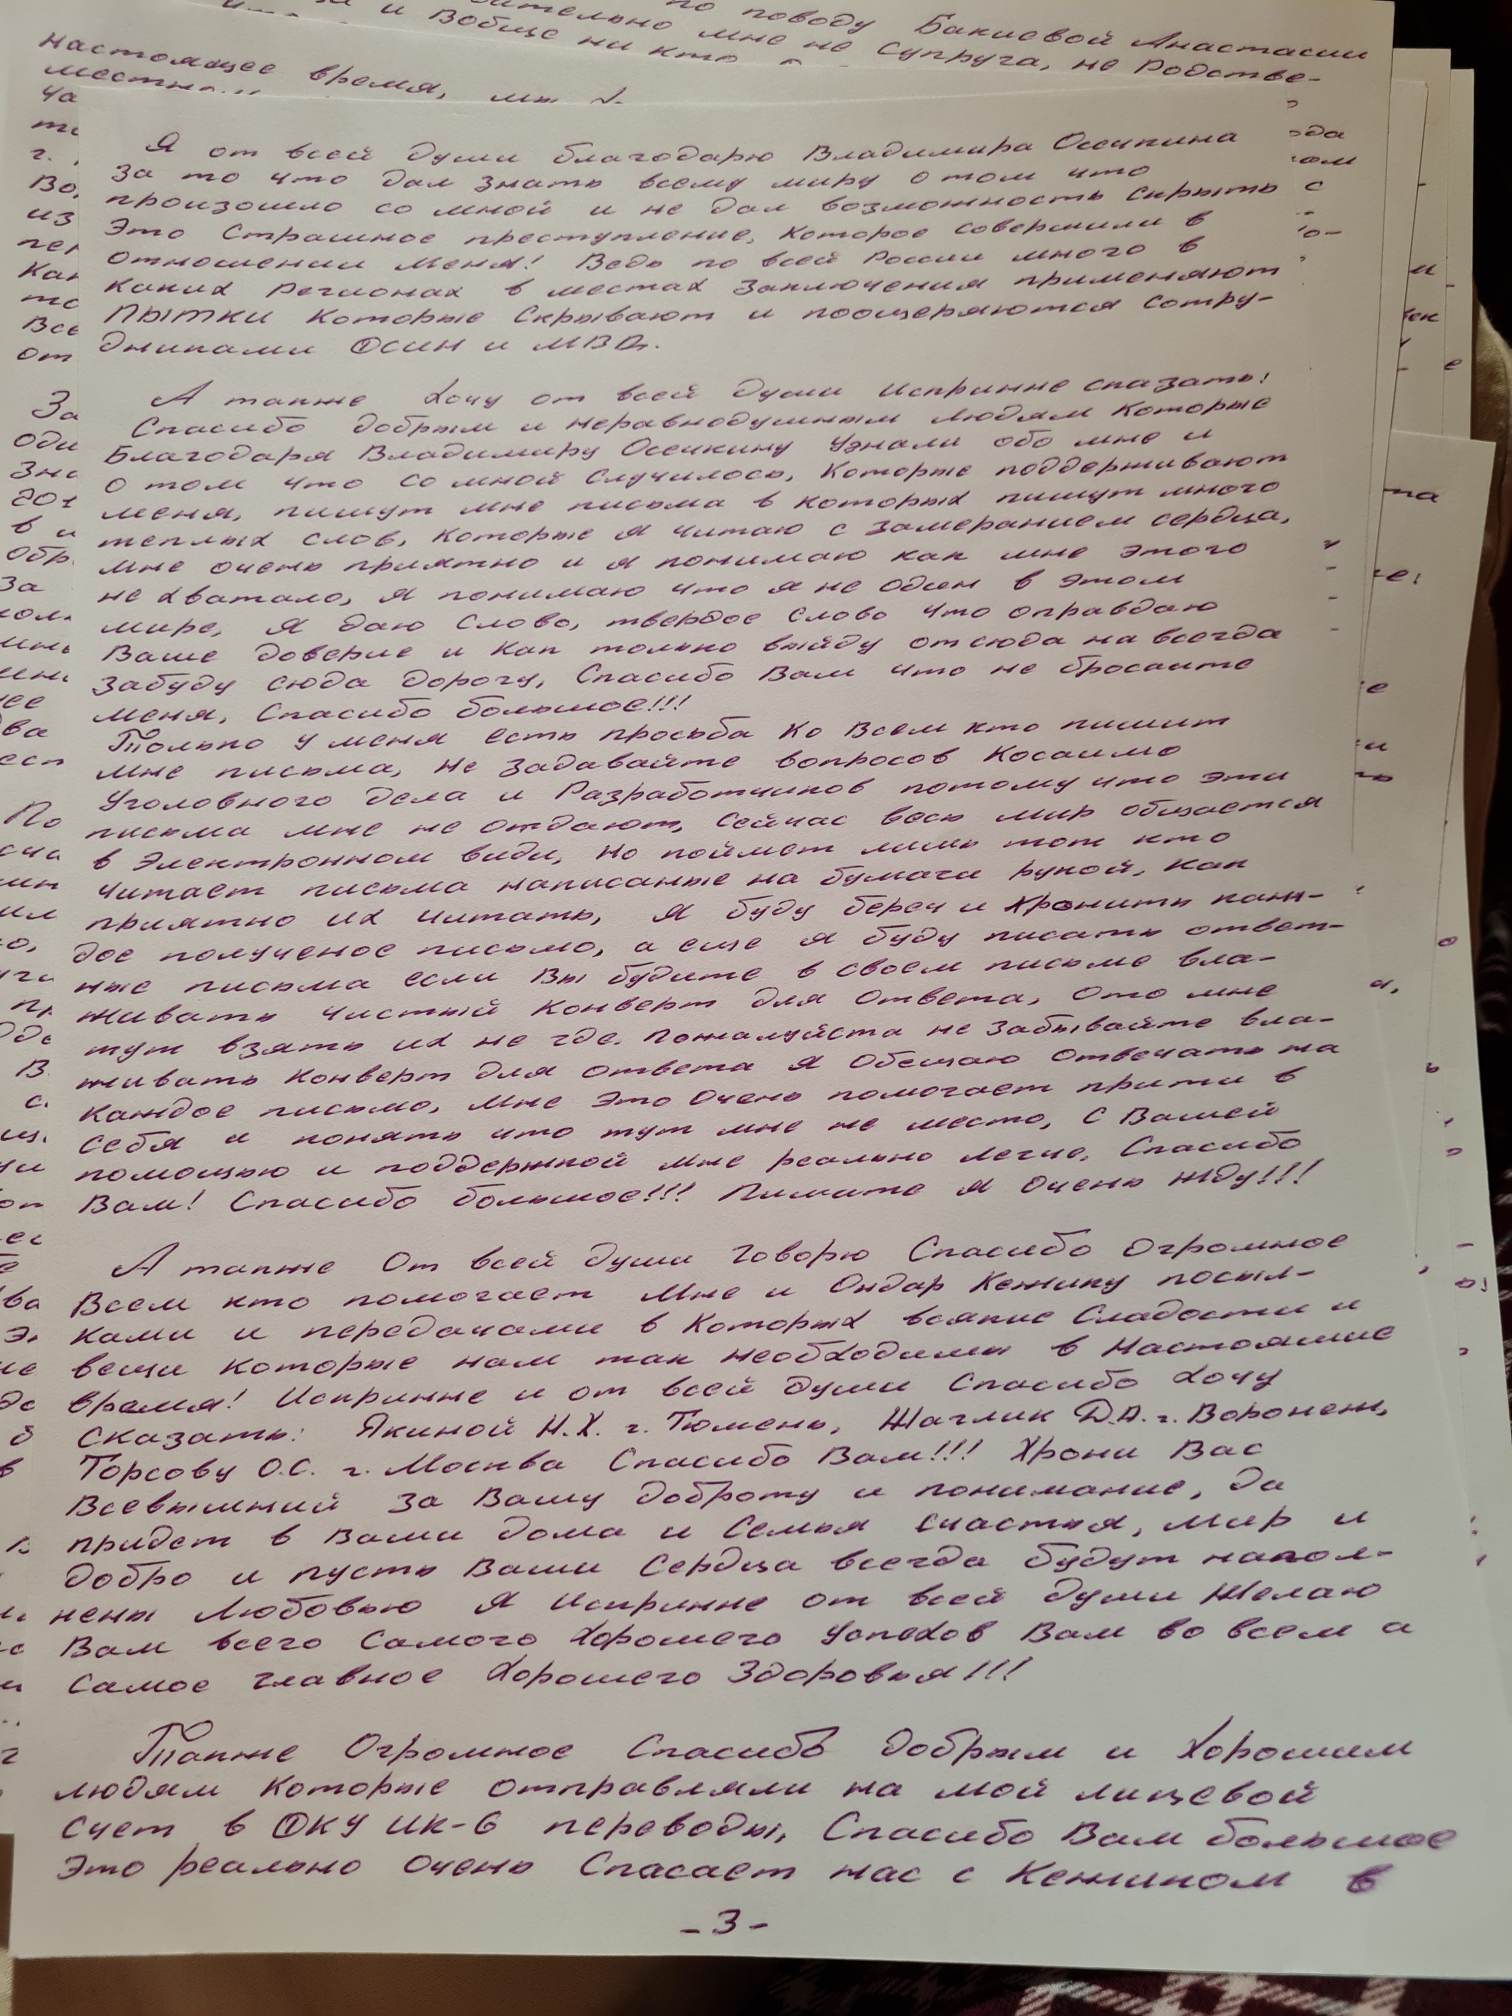 по поводу Бакиевой Анастасии
мне не супруга, не родстве-
и вобще ни кто
настоящее время, мы
Я от всей души благодарю Владимира Осечкина
за то что дал знать всему миру о том что
произошло со мной и не дал возможность скрыть
Это Страшное преступление, которое совершили в
отношении меня! Ведь по всей России много в
каких регионах в местах заключения применяют
ПЫТКИ которые скрывают и поощеряются сотру-
дниками ФСИН и МВД.
А также хочу от всей души искринне сказать!
Спасибо добрым и неравнодушным людям которые
Благодаря Владимиру Осечкину узнали обо мне и
о том что со мной случилось, которые поддерживают
меня, пишут мне письма в которых пишут много
теплых слов, которые я читаю с замеранием сердца,
мне очень приятно и я понимаю как мне этого
не хватало, я понимаю что я не один в этом
мире, я даю слово, твердое слово что оправдаю
Ваше доверие и как только выйду отсюда на всегда
забуду сюда дорогу, Спасибо Вам что не бросаите
меня, Спасибо большое!!!
Только у меня есть просьба ко Всем кто пишит
мне письма, не задавайте вопросов Косаимо
Уголовного дела и Разработчиков потому что эти
письма мне не отдают, сейчас весь мир общается
в электронном види, но поймет лишь тот кто
читает письма написаные на бумаги рукой, как
приятно их читать, я буду береч и хронить каж-
дое полученое письмо, а еще я буду писать ответ-
ные письма если Вы будите в своем письме вла-
живать чистый конверт для ответа, Ото мне
тут взять их не где. пожалуйста не забывайте вла-
живать конверт для ответа я обещаю отвечать на
каждое письмо, мне это очень помогает прити в
себя и понять что тут мне не место, с Вашей
помощью и поддержкой мне реально легче, Спасибо
Вам! Спасибо большое!!! Пишите я очень жду!!!
А также От всей души говорю Спасибо огромное
Всем кто помогает мне и Ондар Кежику посыл-
ками и передачами в которых всякие сладости и
вещи которые нам так необходимы в настоящие
время! Искринне и от всей души Спасибо хочу
сказать: Якиной Н.Х. г. Тюмень, Шаглик Д.А. г. Воронеж,
Торсову О.С. г. Москва Спасибо Вам!!! Хрони Вас
Всевышний за Вашу доброту и понимание, да
придет в Ваши дома и семья счастья, мир и
добро и пусть Ваши сердца всегда будут напол-
нены любовью я искринне от всей души желаю
Вам всего самого хорошего успехов Вам во всем а
самое главное хорошего здоровья!!!
Также Огромное Спасибо добрым и хорошим
людям которые отправляли на мой лицевой
счет в ФКУ ИК-6 переводы, Спасибо Вам большое
Это реально очень Спасает нас с Кежиком в
-3-